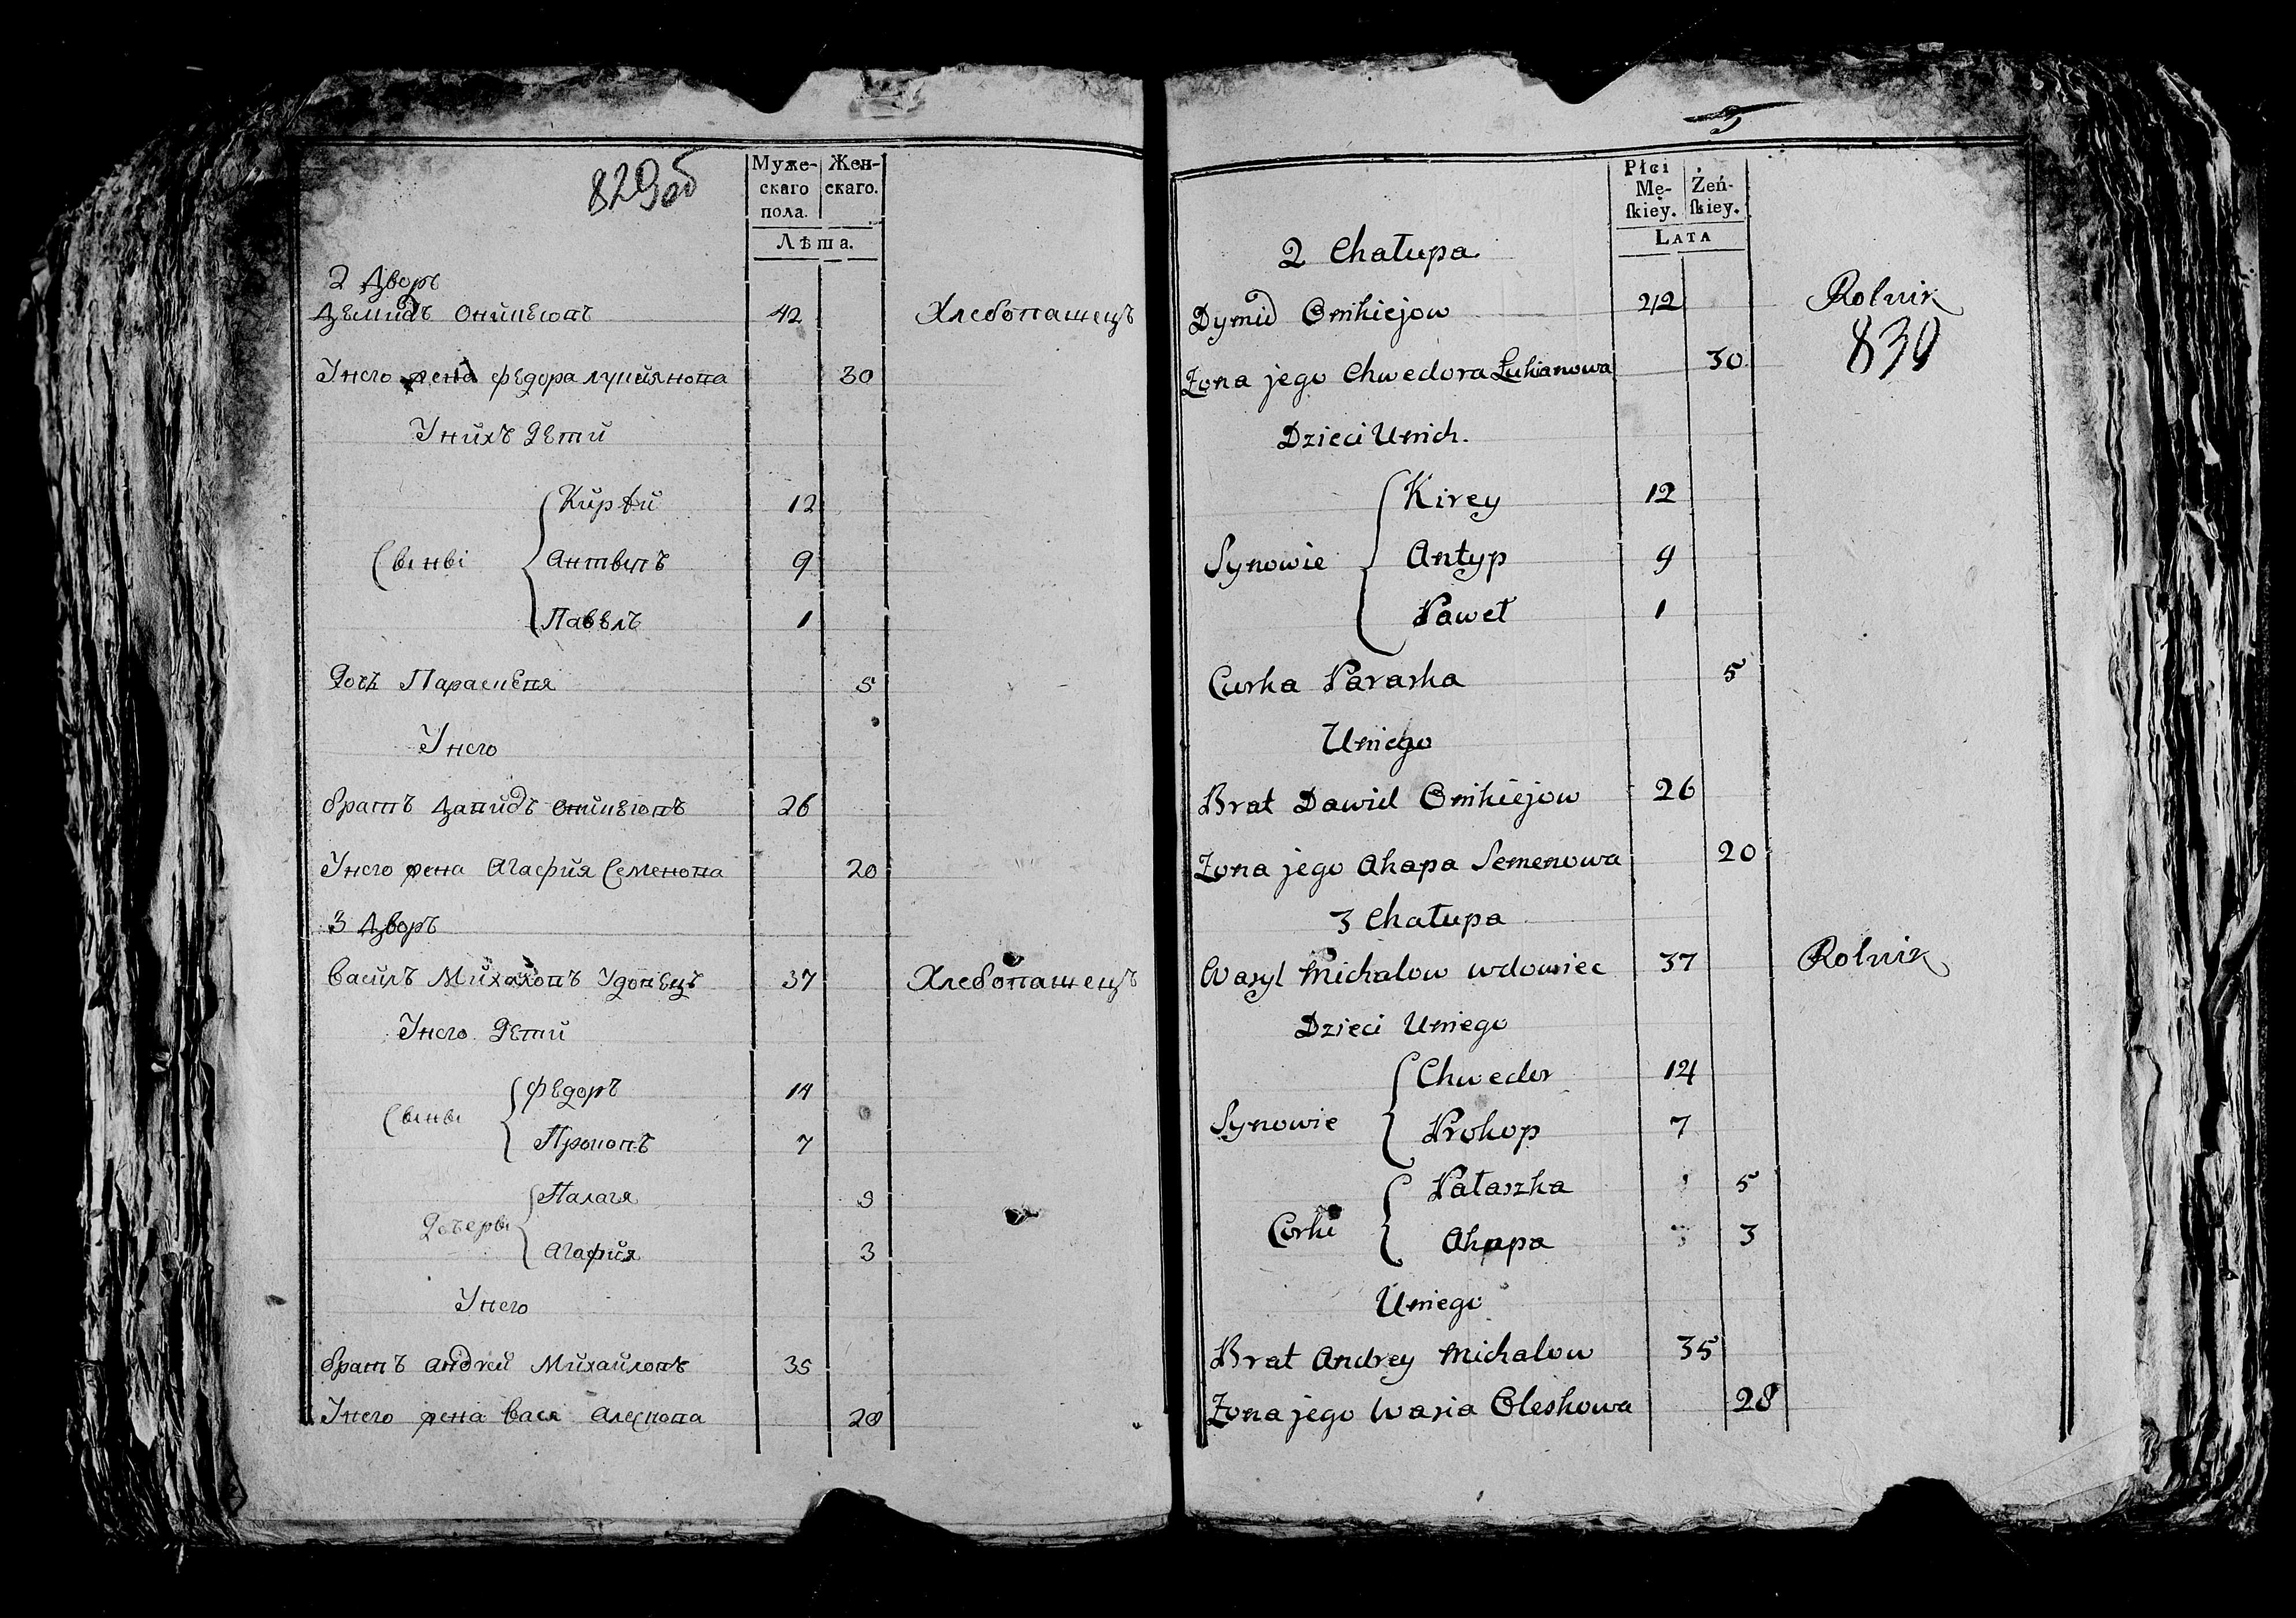 829об
Муже- Жен-
скаго скаго.
пола.
Лѣта.
2 Дворъ
Демидъ Оникеювъ 42 Хлебопашецъ
Унего жена Федора Лукьянова 30
Унихъ дети
Кирѣй 12
Сыны Антыпъ 9
Павелъ 1
Дочь Параскевя 5
Унего
братъ Давидъ Оникеювъ 26
Унего жена Агафия Семенова 20
3 Дворъ
Василъ Михаловъ Удовецъ 37 Хлебопашецъ
Унего дети
Федоръ 14
Сыны
Прокопъ 7
Палагя
Дочеры
Агафия 3
Унего
братъ Андrей Михайловъ 35
Унего жена Вася Алескова
5
Płci
Mę- Żeń-
ſkiey. ſkiey.
LATA
2 Chałupa
Dymid Onikiejow 42 Rolnik
830
Żona jego Chwedora Łukianowa 30
Dzieci Unich.
Kirey 12
Synowie Antyp 9
Paweł 1
Curka Paraska 5
Uniego
Brat Dawid Onikiejow 26
Żona jego Ahapa Semenowa 20
3 Chałupa
Wasyl Michalow wdowiec 37 Rolnik
Dzieci Uniego
Chwedor 14
Synowie
Prokop 7
Pałaszka 5
Corki
Ahapa 3
Uniego
Brat Andrey Michalow 35
Żona jego Wasia Oleskowa 28